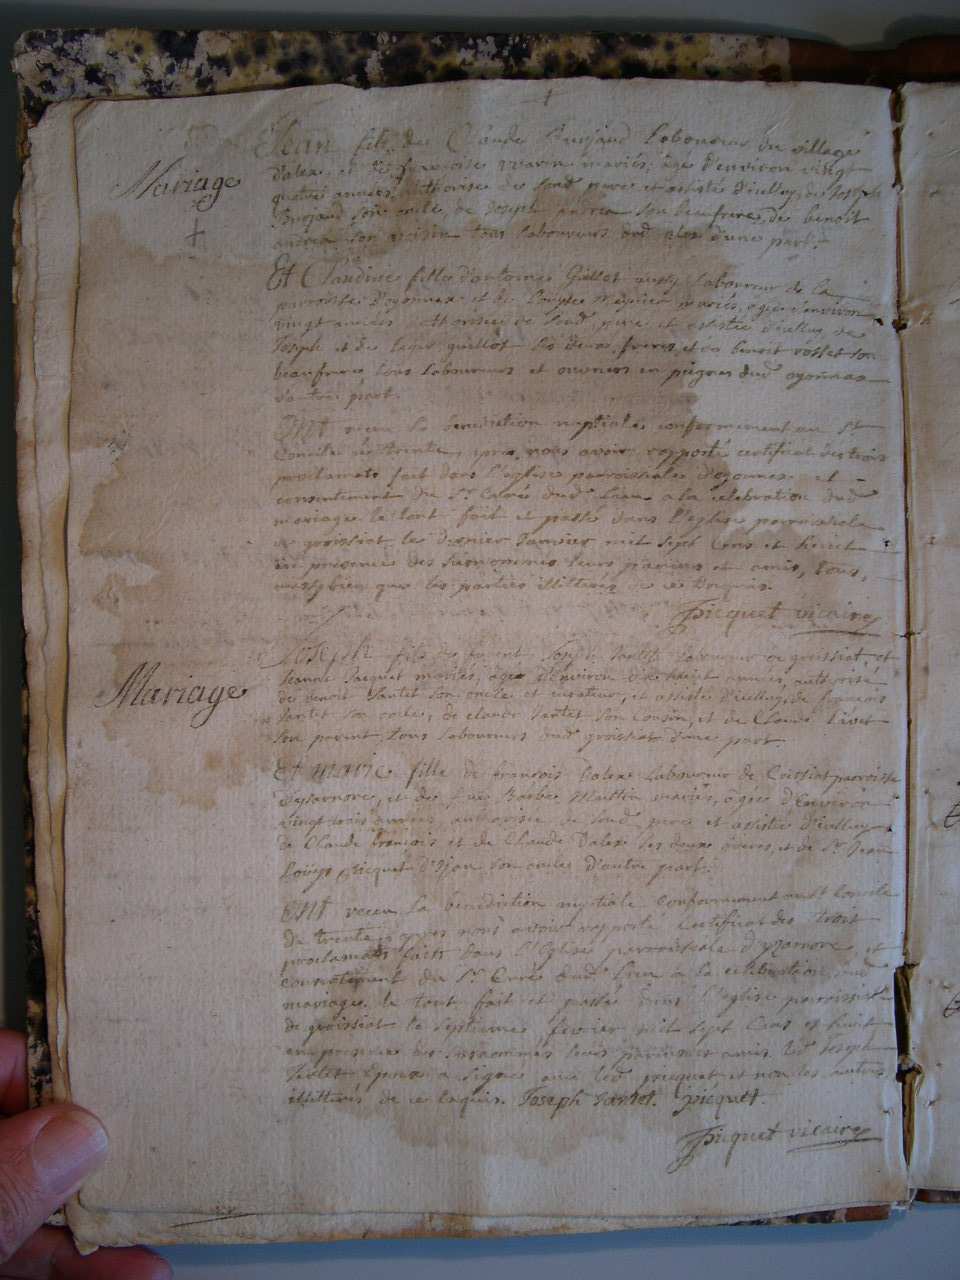 Jean fils de Claude Burjaud Laboureur du village
Mariage
d'alex et de françoise mariés, agé d'environ vingt
quatre années, authorisé de sond. pere et assisté d'icelluy, de Joseph
Burjaud son oncle, de Joseph andrea son beaufrere, de benoit
andrea son voisin tous laboureurs dud. alex d'une part.
Et Claudine fille d'antoine Guillot aussy laboureur de la
parroisse d'oyonnax et de mariés, agée d'environ
vingt années authorisée de sond. pere et assistée d'icelluy de
Joseph et de Guillot ses deux freres, et de benoit rosset son
beaufrere tous laboureurs et ouvriers en peignes dud. oyonnax
d'autre part.
Ont receu la benediction nuptiale conformement au St
Concile de trente, apres nous avoir rapporté certificat des trois
proclamats fait dans l'eglise parroissiale d'oyonnax et
consentement du Sr. Curé dud. lieu a la celebration dud.
mariage le tout fait et passé dans l'eglise parroissiale
de groissiat le dernier Janvier mil sept cens et huict
en presence des surnommés leurs parens et amis, tous,
aussy bien que les parties illitterés de ce enquis.
Picquet vicaire
Joseph fils de Joseph Tantet laboureur de groissiat, et
Mariage
Jeanne Jacquet mariés, agé d'environ années, authorisé
de benoit Tantet son oncle et curateur, et assisté d'icelluy, de françois
Tantet son oncle, de claude Tantet son cousin, et de Claude Livet
son parent, tous laboureurs dud. groissiat d'une part.
Et marie fille de françois Dalex laboureur de Ceissiat parroisse
d'yzernore, et de Barbe Mattin mariés, agée d'environ
vingt trois années, authorisée de sond. pere et assistée d'icelluy
de Claude françois et de Claude Dalex ses deux freres, et de Sr. Jean
Louys Picquet d'Ijean son oncle d'autre part.
Ont receu la benediction nuptiale conformement au St Concile
de trente apres nous avoir rapporté certificat des trois
proclamats faits dans l'Eglise parroissiale d'yzernore, et
consentement du Sr. Curé dud. lieu a la celebration dud.
mariage. le tout fait et passé dans l'eglise parroissiale
de groissiat le septieme fevrier mil sept Cens et huit
en presence des surnommés leurs parens et amis. led. Joseph
Tantet Epoux a signé avec led. picquet et non les autres
illitterés de ce enquis. Joseph Tantet. Picquet.
Picquet vicaire